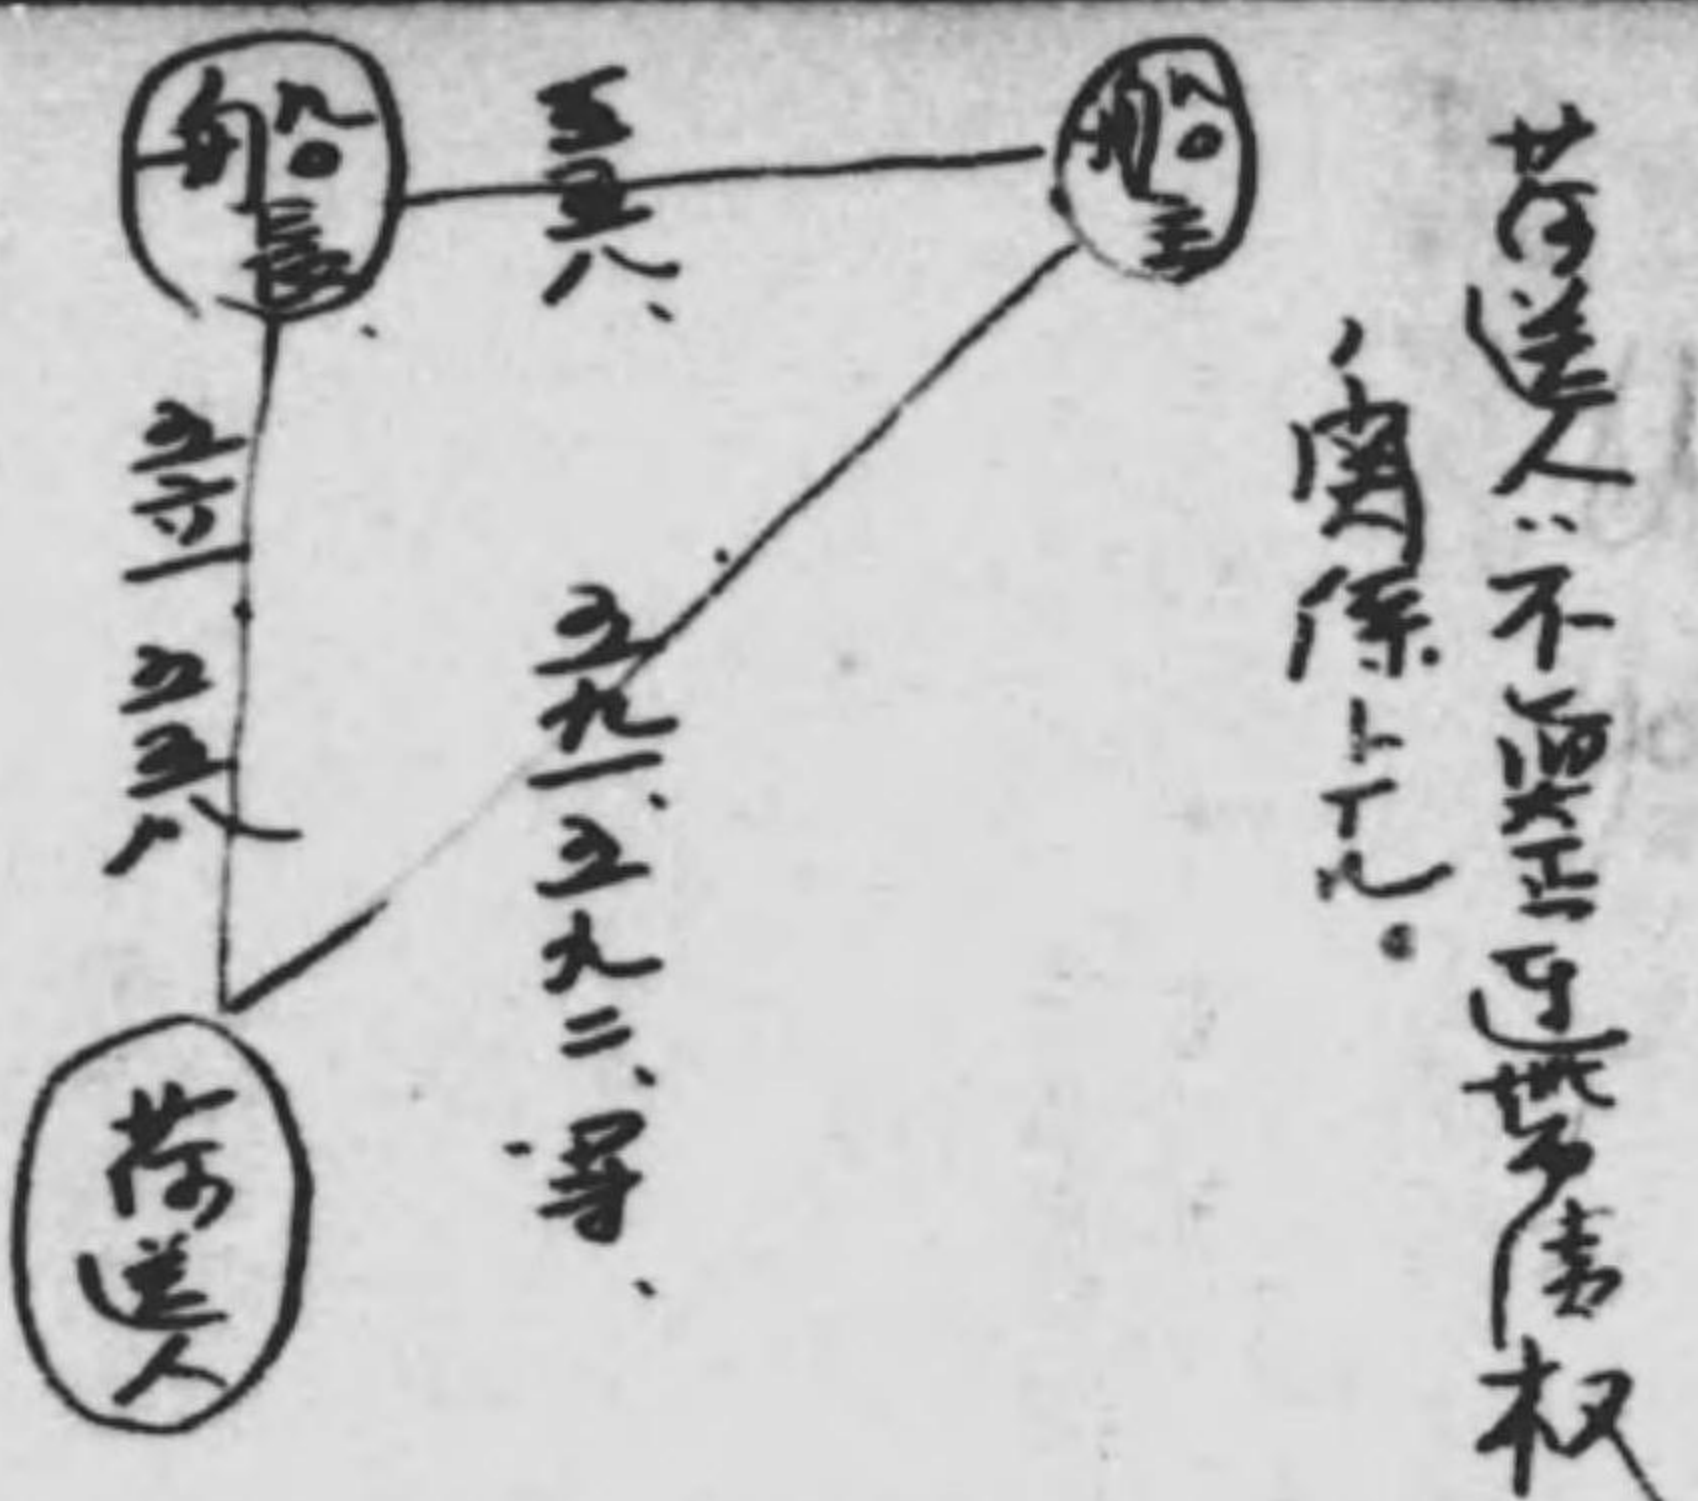 荷送人ニ不眞正連帯債权
ノ関係トナル。
船主
五五八、
船長
五九一、五九二、等、
五六一 五五八
荷送人